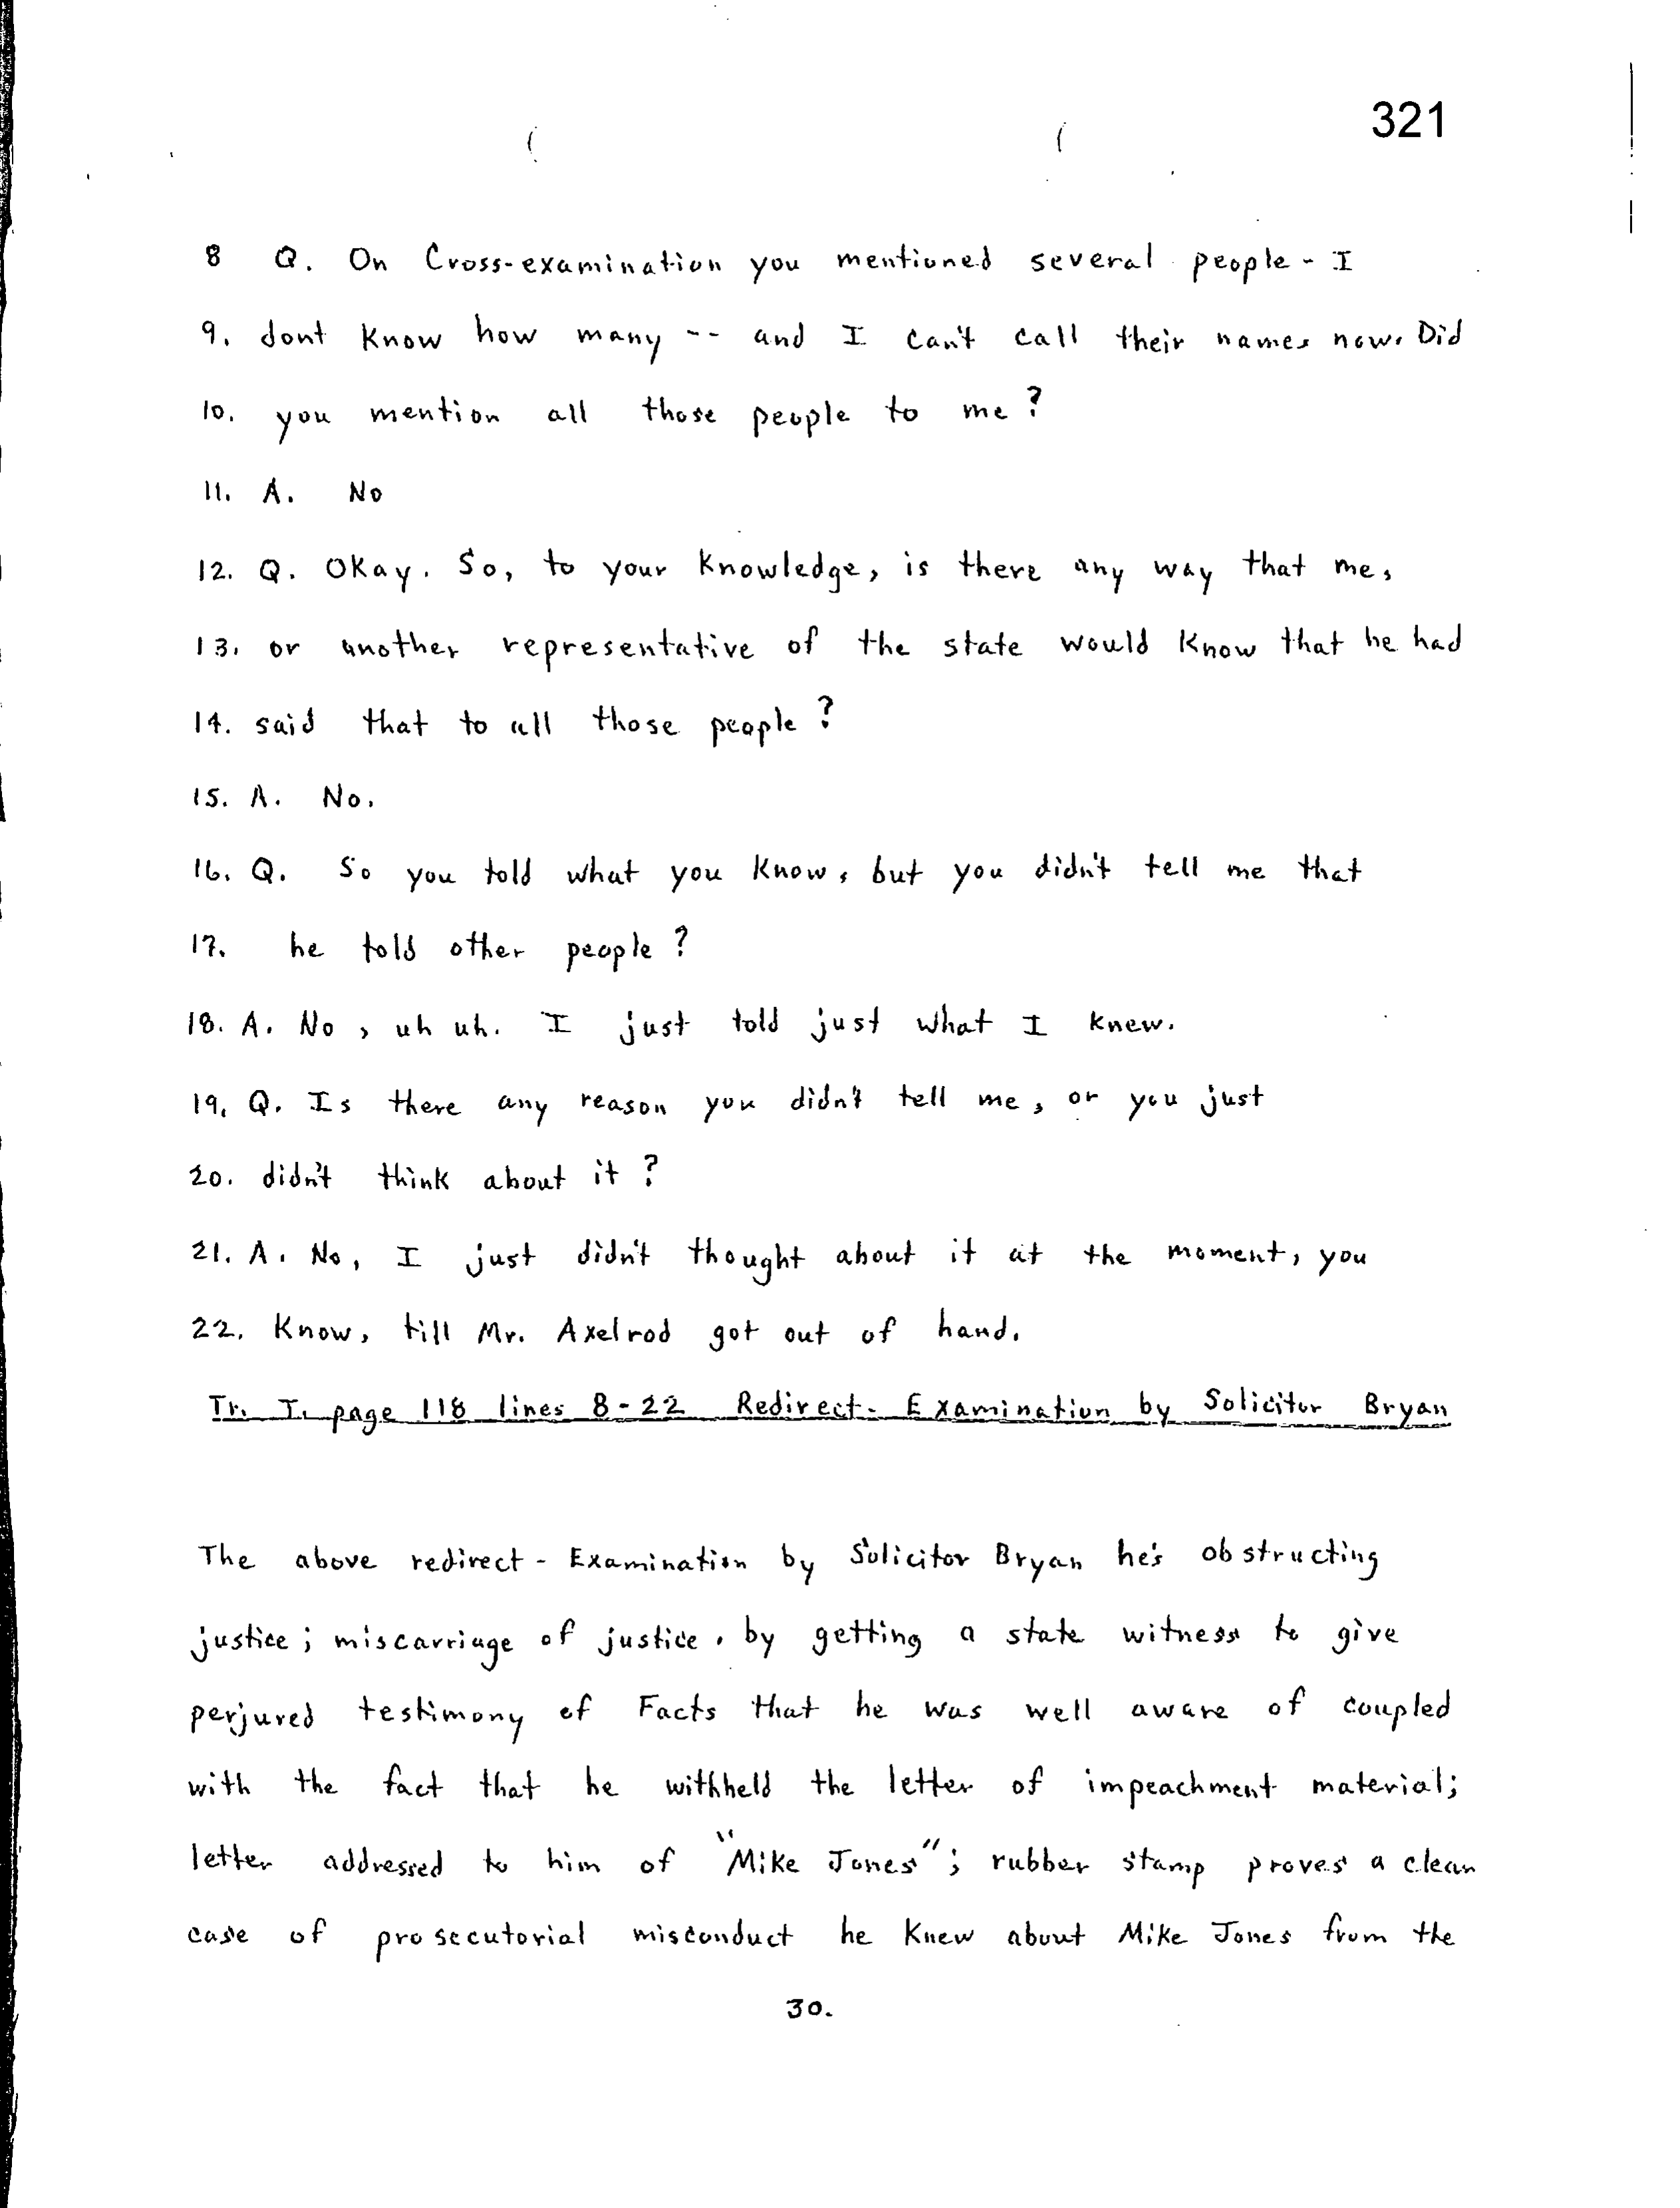 321
8 Q. On Cross-examination you mentioned several people - I
9. dont know how many -- and I can't call their names now. Did
10. you mention all those people to me?
11. A. No
12. Q. Okay. So, to your knowledge, is there any way that me,
13. or another representative of the state would know that he had
14. said that to all those people?
15. A. No.
16. Q. So you told what you know, but you didn't tell me that
17. he told other people?
18. A. No, uh uh. I just told just what I knew.
19. Q. Is there any reason you didn't tell me, or you just
20. didn't think about it?
21. A. No, I just didn't thought about it at the moment, you
22. Know, till Mr. Axelrod got out of hand.
Tr. I. page 118 lines 8-22 Redirect- Examination by Solicitor Bryan
The above redirect - Examination by Solicitor Bryan he's obstructing
justice; miscarriage of justice. by getting a state witness to give
perjured testimony of Facts that he was well aware of coupled
with the fact that he withheld the letter of impeachment material;
letter addressed to him of "Mike Jones"; rubber stamp proves a clean
case of prosecutorial misconduct he knew about Mike Jones from the
30.